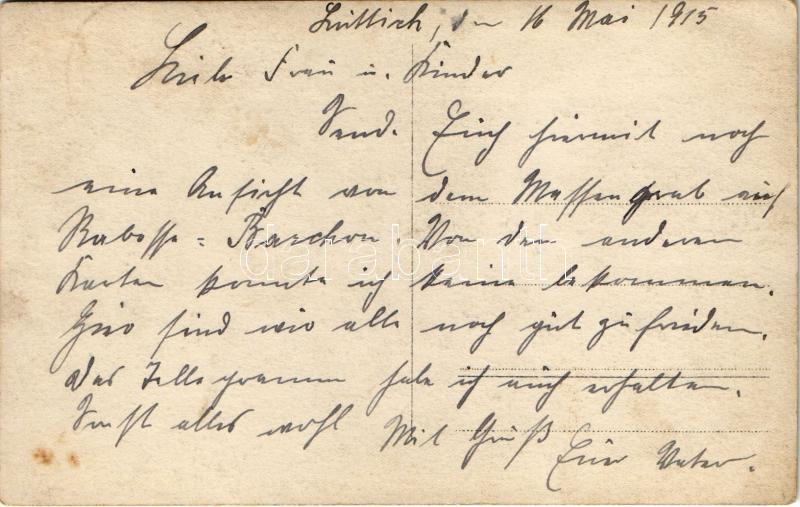 Lüttich, den 16 Mai 1915
Liebe Frau u. Kinder
Send. Euch hiermit noch
eine Ansicht von dem Massengrab auf
Rabosse = Barchon. Von den anderen
Karten konnte ich keine bekommen.
Hier sind wir alle noch gut zufrieden.
Das Tellegramm habe ich auch erhalten.
Sonst alles wohl Mit Gruß
Euer Vater.
darabanth